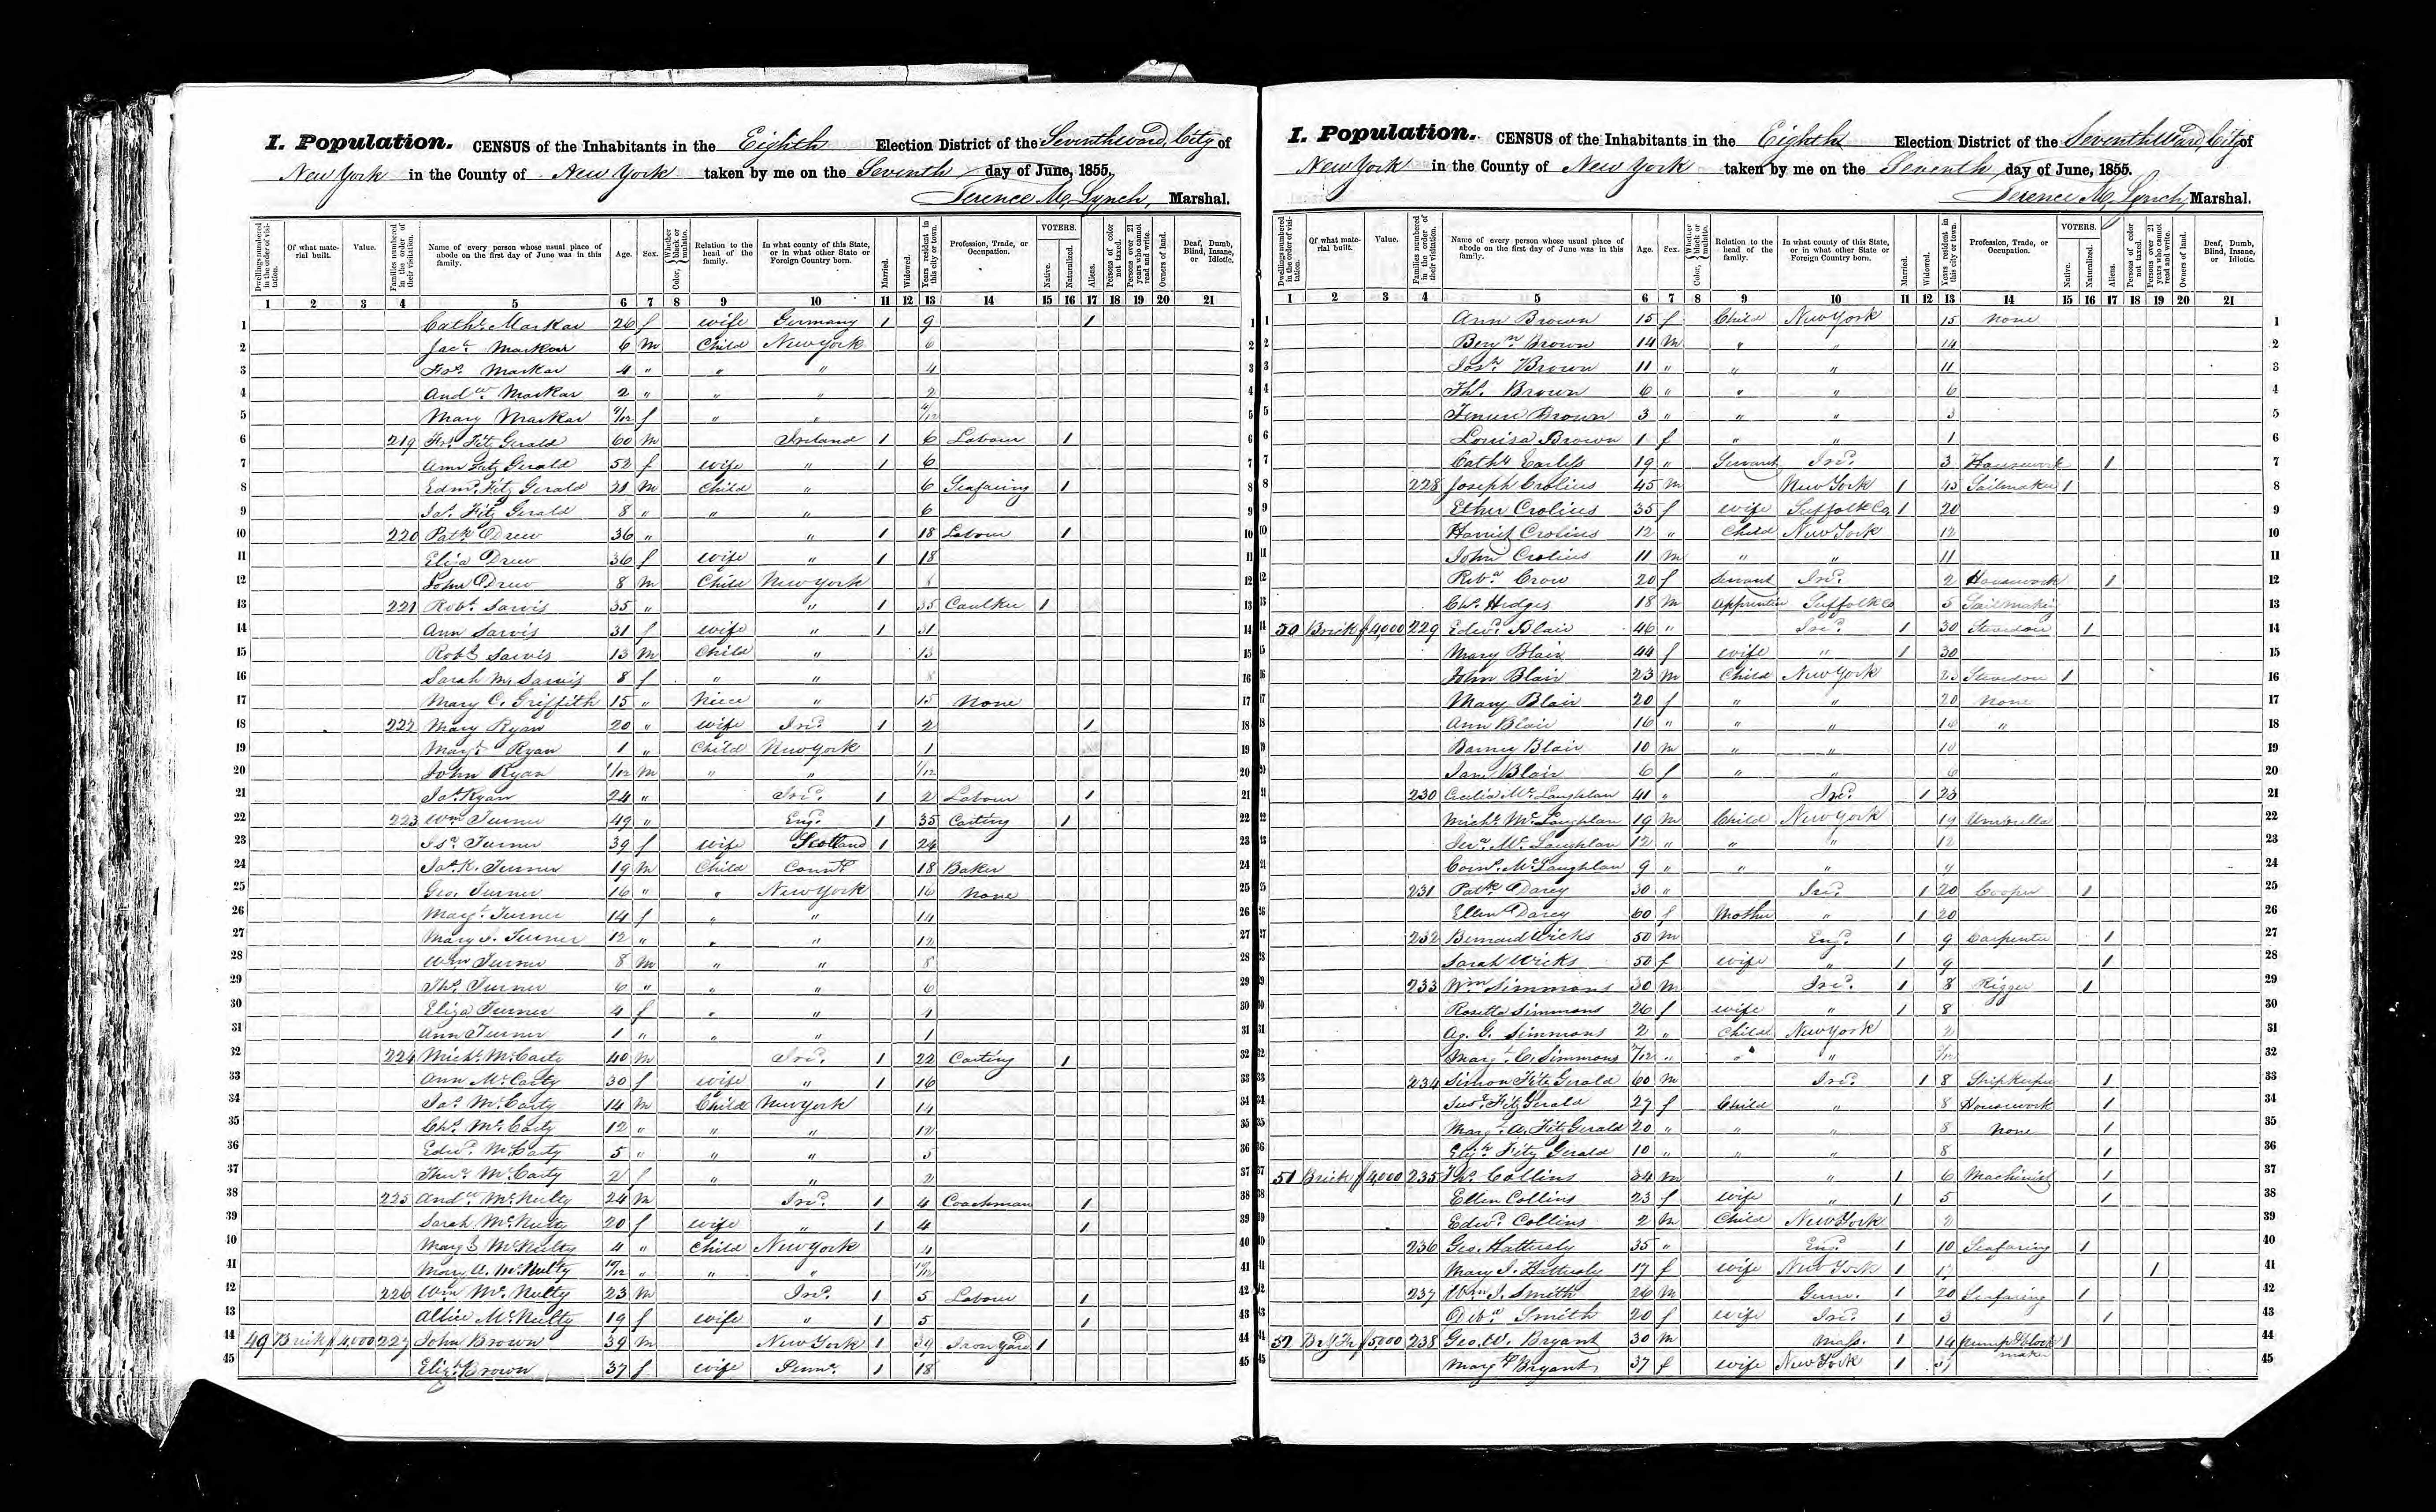 I. Population. CENSUS of the Inhabitants in the Eighth Election District of the Seventh Ward, City of
New York in the County of New York taken by me on the Seventh day of June, 1855.
Terence Mc Lynch, Marshal.
Dwellings numbered in the order of visitation. Of what material built. Value. Families numbered in the order of their visitation. Name of every person whose usual place of abode on the first day of June was in this family. Age. Sex. Color, Whether black or mulatto. Relation to the head of the family. In what county of this State, or in what other State or Foreign Country born. Married. Widowed. Years resident in this city or town. Profession, Trade, or Occupation. VOTERS. Native. Naturalized. Aliens. Persons of color not taxed. Persons over 21 years who cannot read and write. Owners of land. Deaf, Dumb, Blind, Insane, or Idiotic.
1 2 3 4 5 6 7 8 9 10 11 12 13 14 15 16 17 18 19 20 21
1 Cath. Markar 26 f wife Germany 1 9 1 1
2 Jac. Markar 6 M Child New York 6 2
3 Markar 4 " " " 4 3
4 Andw. Markar 2 " " " 2 4
5 Mary Markar f " " 5
6 219 Fitz Gerald 60 M Ireland 1 6 Labour 1 6
7 Ann Fitz Gerald 52 f wife " 1 6 7
8 Edmd. Fitz Gerald 21 M Child " 6 Seafaring 1 8
9 Jas. Fitz Gerald 8 " " " 6 9
10 220 Patk. Drew 36 " " 1 18 Labour 1 10
11 Eliza Drew 36 f wife " 1 18 11
12 John Drew 8 M Child New York 8 12
13 221 Robt. Jarvis 35 " " 1 35 Caulker 1 13
14 Ann Jarvis 31 f wife " 1 31 14
15 Robt. Jarvis 13 M Child " 13 15
16 Sarah M. Jarvis 8 f " " 8 16
17 Mary C. Griffith 15 " Niece " 15 None 17
18 222 Mary Ryan 20 " wife Ired. 1 2 1 18
19 Margt. Ryan 1 " Child New York 1 19
20 John Ryan 1/12 M " " 1/12 20
21 Jas. Ryan 24 " Ired. 1 2 Labour 1 21
22 223 Wm Turner 49 " Engd. 1 35 Carting 1 22
23 Isa. Turner 39 f wife Scotland 1 24 23
24 Jas. K. Turner 19 M Child Connt. 18 Baker 24
25 Geo. Turner 16 " " New York 16 None 25
26 Margt. Turner 14 f " " 14 26
27 Mary J. Turner 12 " " " 12 27
28 Wm Turner 8 M " " 8 28
29 Ths. Turner 6 " " " 6 29
30 Eliza Turner 4 f " " 4 30
31 Ann Turner 1 " " " 1 31
32 224 Michl. McCarty 40 M Ired. 1 22 Carting 1 32
33 Ann McCarty 30 f wife " 1 16 33
34 Jas. McCarty 14 M Child New York 14 34
35 Chs. McCarty 12 " " " 12 35
36 Edwd. McCarty 5 " " " 5 36
37 McCarty 2 f " " 2 37
38 225 Andw. McNulty 24 M Ired. 1 4 Coachman 1 38
39 Sarah McNulty 20 f wife " 1 4 1 39
40 Margt. McNulty 4 " Child New York 4 40
41 Mary A. McNulty 10/12 " " " 10/12 41
42 226 Wm McNulty 23 M Ired. 1 5 Labour 1 42
43 Allice McNulty 19 f wife " 1 5 1 43
44 49 Brick $4,000 227 John Brown 39 M New York 1 39 Iron Yard 1 44
45 Elizh. Brown 37 f wife Penna. 1 18 45
I. Population. CENSUS of the Inhabitants in the Eighth Election District of the Seventh Ward, City of
New York in the County of New York taken by me on the Seventh day of June, 1855.
Terence Mc Lynch, Marshal.
Dwellings numbered in the order of visitation. Of what material built. Value. Families numbered in the order of their visitation. Name of every person whose usual place of abode on the first day of June was in this family. Age. Sex. Color, Whether black or mulatto. Relation to the head of the family. In what county of this State, or in what other State or Foreign Country born. Married. Widowed. Years resident in this city or town. Profession, Trade, or Occupation. VOTERS. Native. Naturalized. Aliens. Persons of color not taxed. Persons over 21 years who cannot read and write. Owners of land. Deaf, Dumb, Blind, Insane, or Idiotic.
1 2 3 4 5 6 7 8 9 10 11 12 13 14 15 16 17 18 19 20 21
1 Ann Brown 15 f Child New York 15 None 1
2 Benjn. Brown 14 M " " 14 2
3 Brown 11 " " " 11 3
4 Ths. Brown 6 " " " 6 4
5 Brown 3 " " " 3 5
6 Louisa Brown 1 f " " 1 6
7 Cath. Earless 19 " Servant Ired. 3 Housework 1 7
8 228 Joseph Crolius 45 M New York 1 45 Sailmaker 1 8
9 Ether Crolius 35 f wife Suffolk Co 1 20 9
10 Harriet Crolius 12 " Child New York 12 10
11 John Crolius 11 M " " 11 11
12 Reba. Crow 20 f Servant Ired. 2 Housework 1 12
13 Chs. Hedges 18 M Apprentice Suffolk Co 5 Sailmaking 13
14 50 Brick $4,000 229 Edwd. Blair 46 " Ired. 1 30 Stevedore 1 14
15 Mary Blair 44 f wife " 1 30 15
16 John Blair 23 M Child New York 23 Stevedore 1 16
17 Mary Blair 20 f " " 20 None 17
18 Ann Blair 16 " " " 16 " 18
19 Barney Blair 10 M " " 10 19
20 Jane Blair 6 f " " 6 20
21 230 Cecilia McLaughlan 41 " Ired. 1 23 21
22 Michl. McLaughlan 19 M Child New York 19 Umbrella 22
23 McLaughlan 12 " " " 12 23
24 Cornl. McLaughlan 9 " " " 9 24
25 231 Patk. Darcy 30 " Ired. 1 20 Cooper 1 25
26 Ellen Darcy 60 f Mother " 1 20 26
27 232 Bernard Wicks 50 M Engd. 1 9 Carpenter 1 27
28 Sarah Wicks 50 f wife " 1 9 1 28
29 233 Wm Simmons 30 M Ired. 1 8 Rigger 1 29
30 Rosetta Simmons 26 f wife " 1 8 30
31 Ag. G. Simmons 2 " Child New York 2 31
32 Margt. C. Simmons " " " 32
33 234 Simon Fitz Gerald 60 M Ired. 1 8 Shipkeeper 1 33
34 Fitz Gerald 27 f Child " 8 Housework 1 34
35 Margt. A. Fitz Gerald 20 " " " 8 None 1 35
36 Elizh. Fitz Gerald 10 " " " 8 1 36
37 51 Brick $4,000 235 Ths. Collins 34 M " 1 6 Machinist 1 37
38 Ellen Collins 23 f wife " 1 5 1 38
39 Edwd. Collins 2 M Child New York 2 39
40 236 Geo. Hattersly 35 " Engd. 1 10 Seafaring 1 40
41 Mary J. Hattersly 17 f wife New York 1 17 1 41
42 237 Wm J. Smith 26 M Germ. 1 20 Seafaring 1 42
43 Deba. Smith 20 f wife Ired. 1 3 1 43
44 52 Br & Fr $5000 238 Geo. W. Bryant 30 M Mass. 1 14 Pump & block maker 1 44
45 Margt. Bryant 37 f wife New York 1 37 45